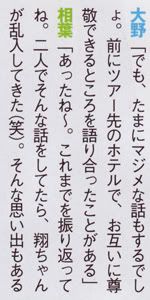 大野「でも、たまにマジメな話もするでし
ょ。前にツアー先のホテルで、お互いに尊
敬できるところを語り合ったことがある」
相葉「あったね〜。これまでを振り返って
ね。二人でそんな話をしてたら、翔ちゃん
が乱入してきた(笑)。そんな思い出もある